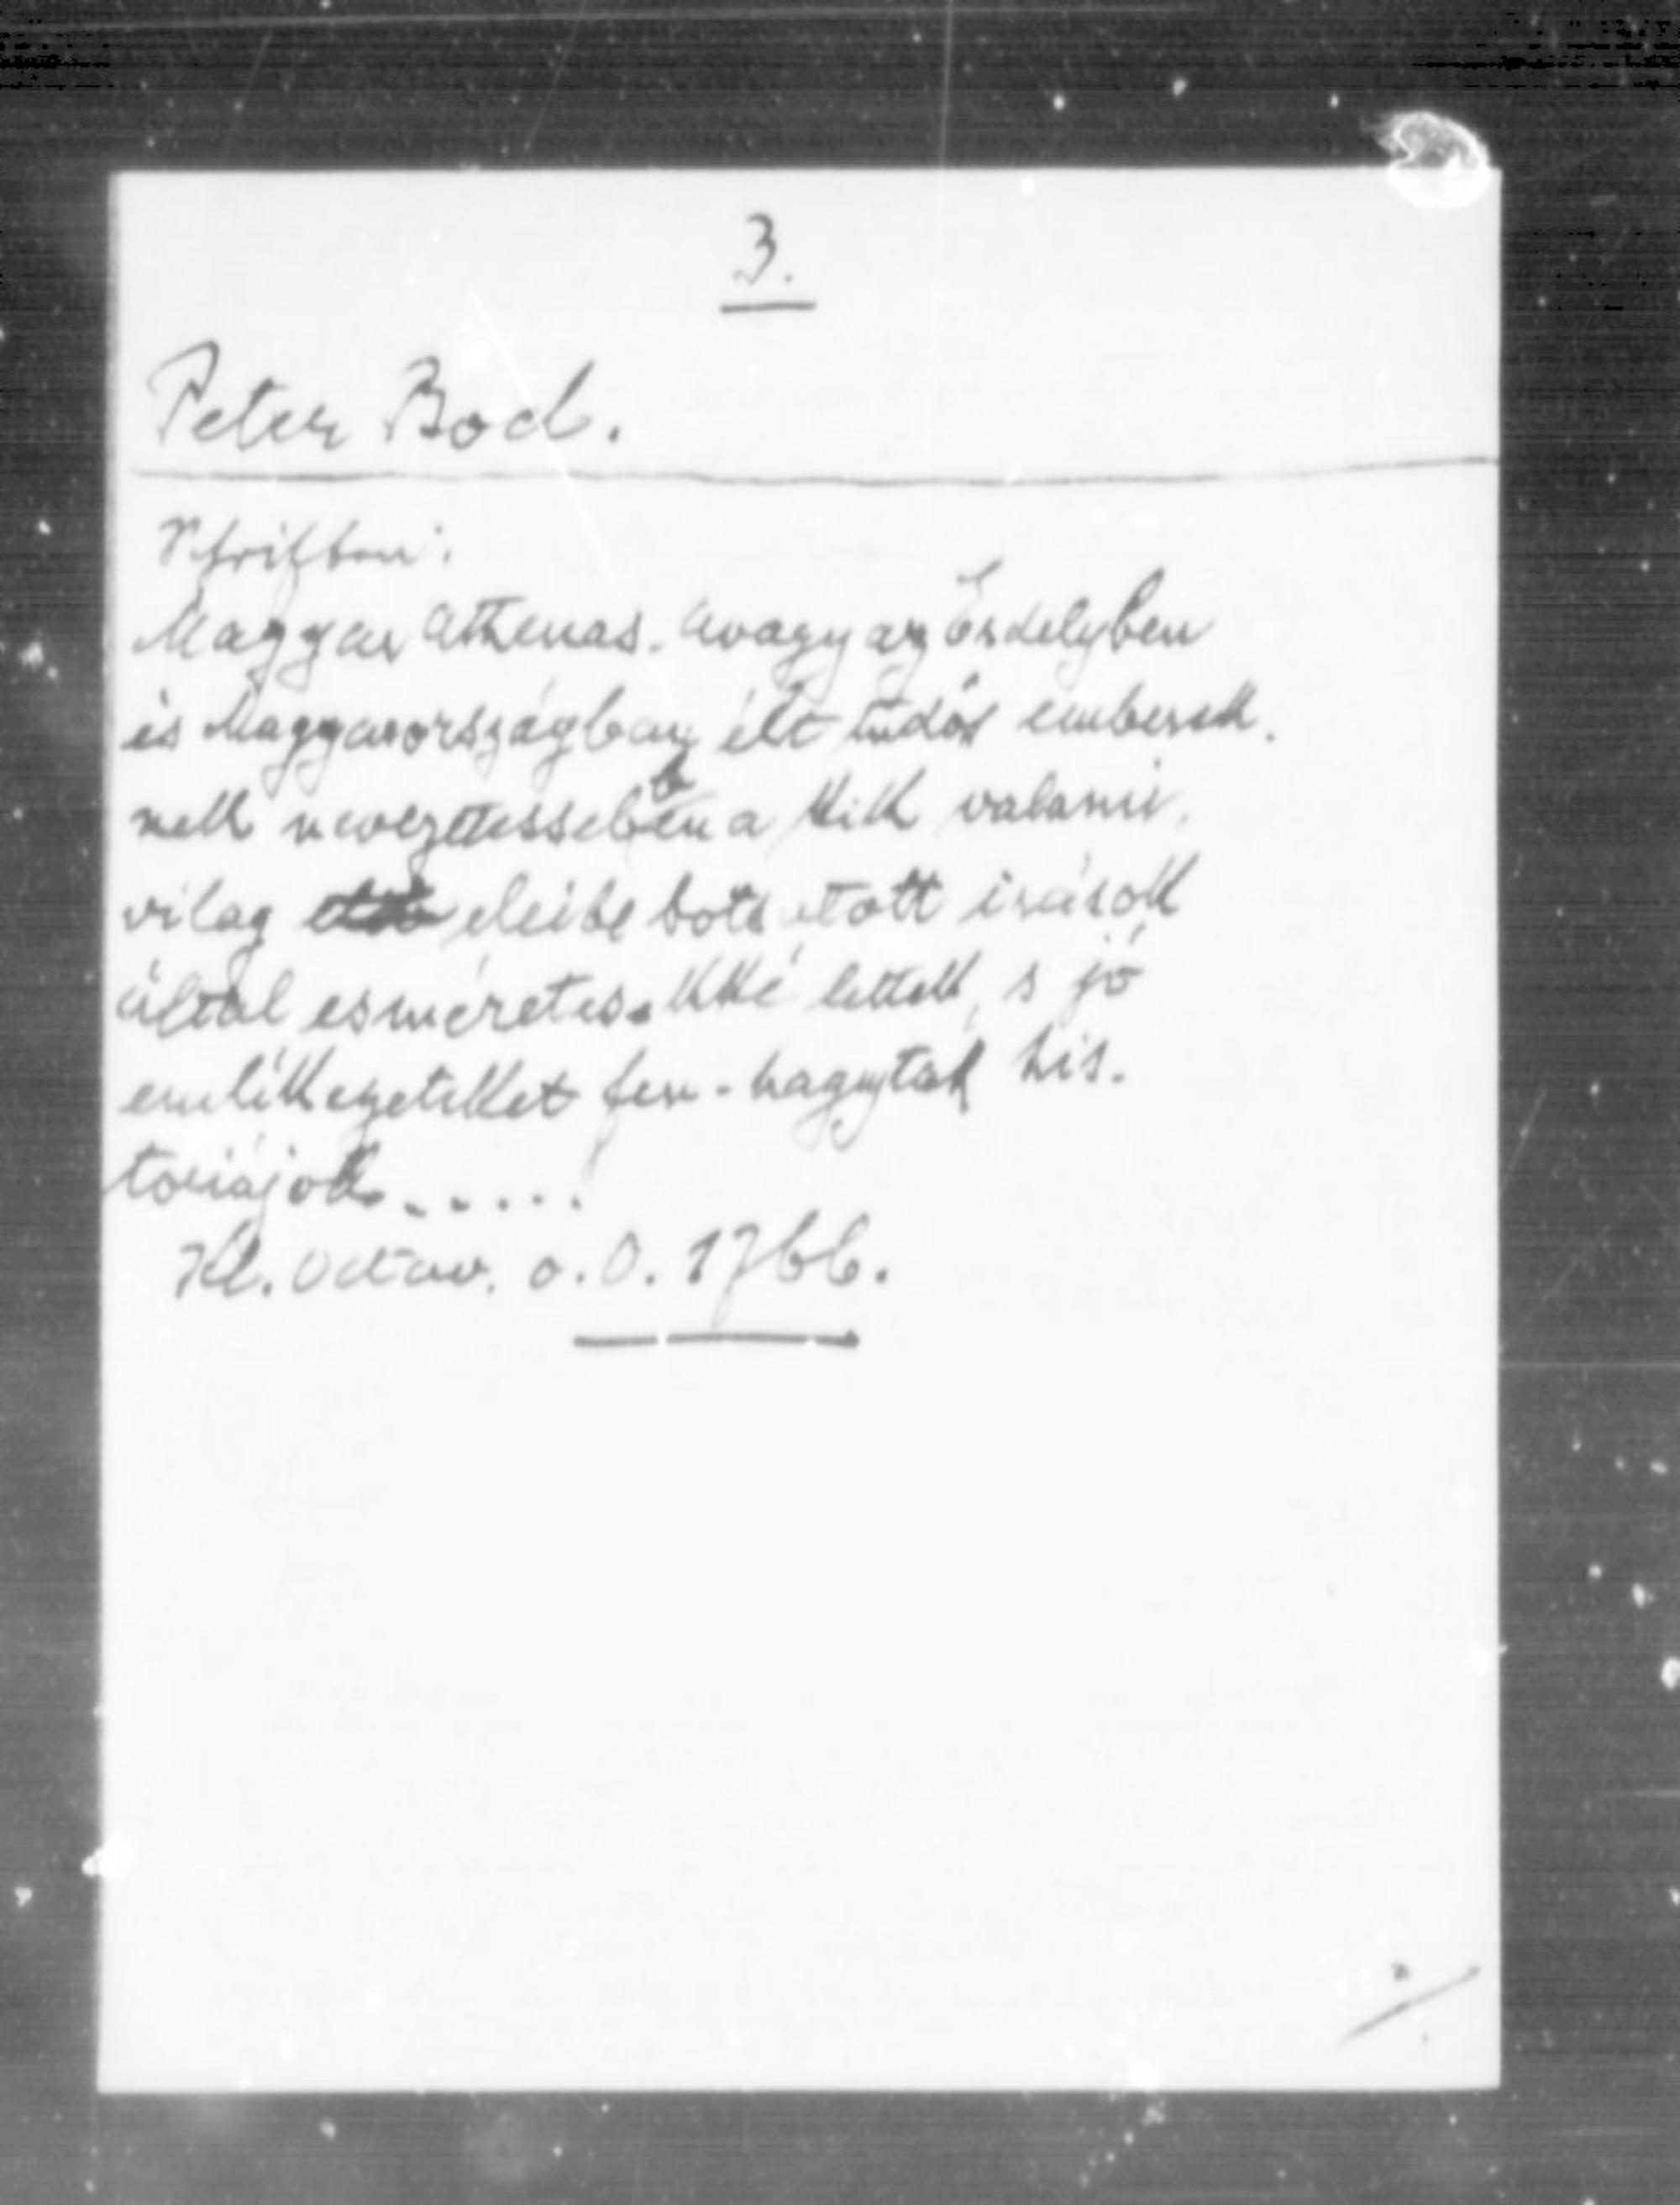 3.
Peter Bod.
Schriften:
Magyar Athenas. avagy az Erdelyben
és Magyarországban élt tudós emberek.
nek nevezetessebben a kik valami,
világ eleibe botsatott irások
által esméretesekké lettek, s jó
emlékezeteket fen-hagyták his.
toriájok.....
Kl. Octav. o. O. 1766.